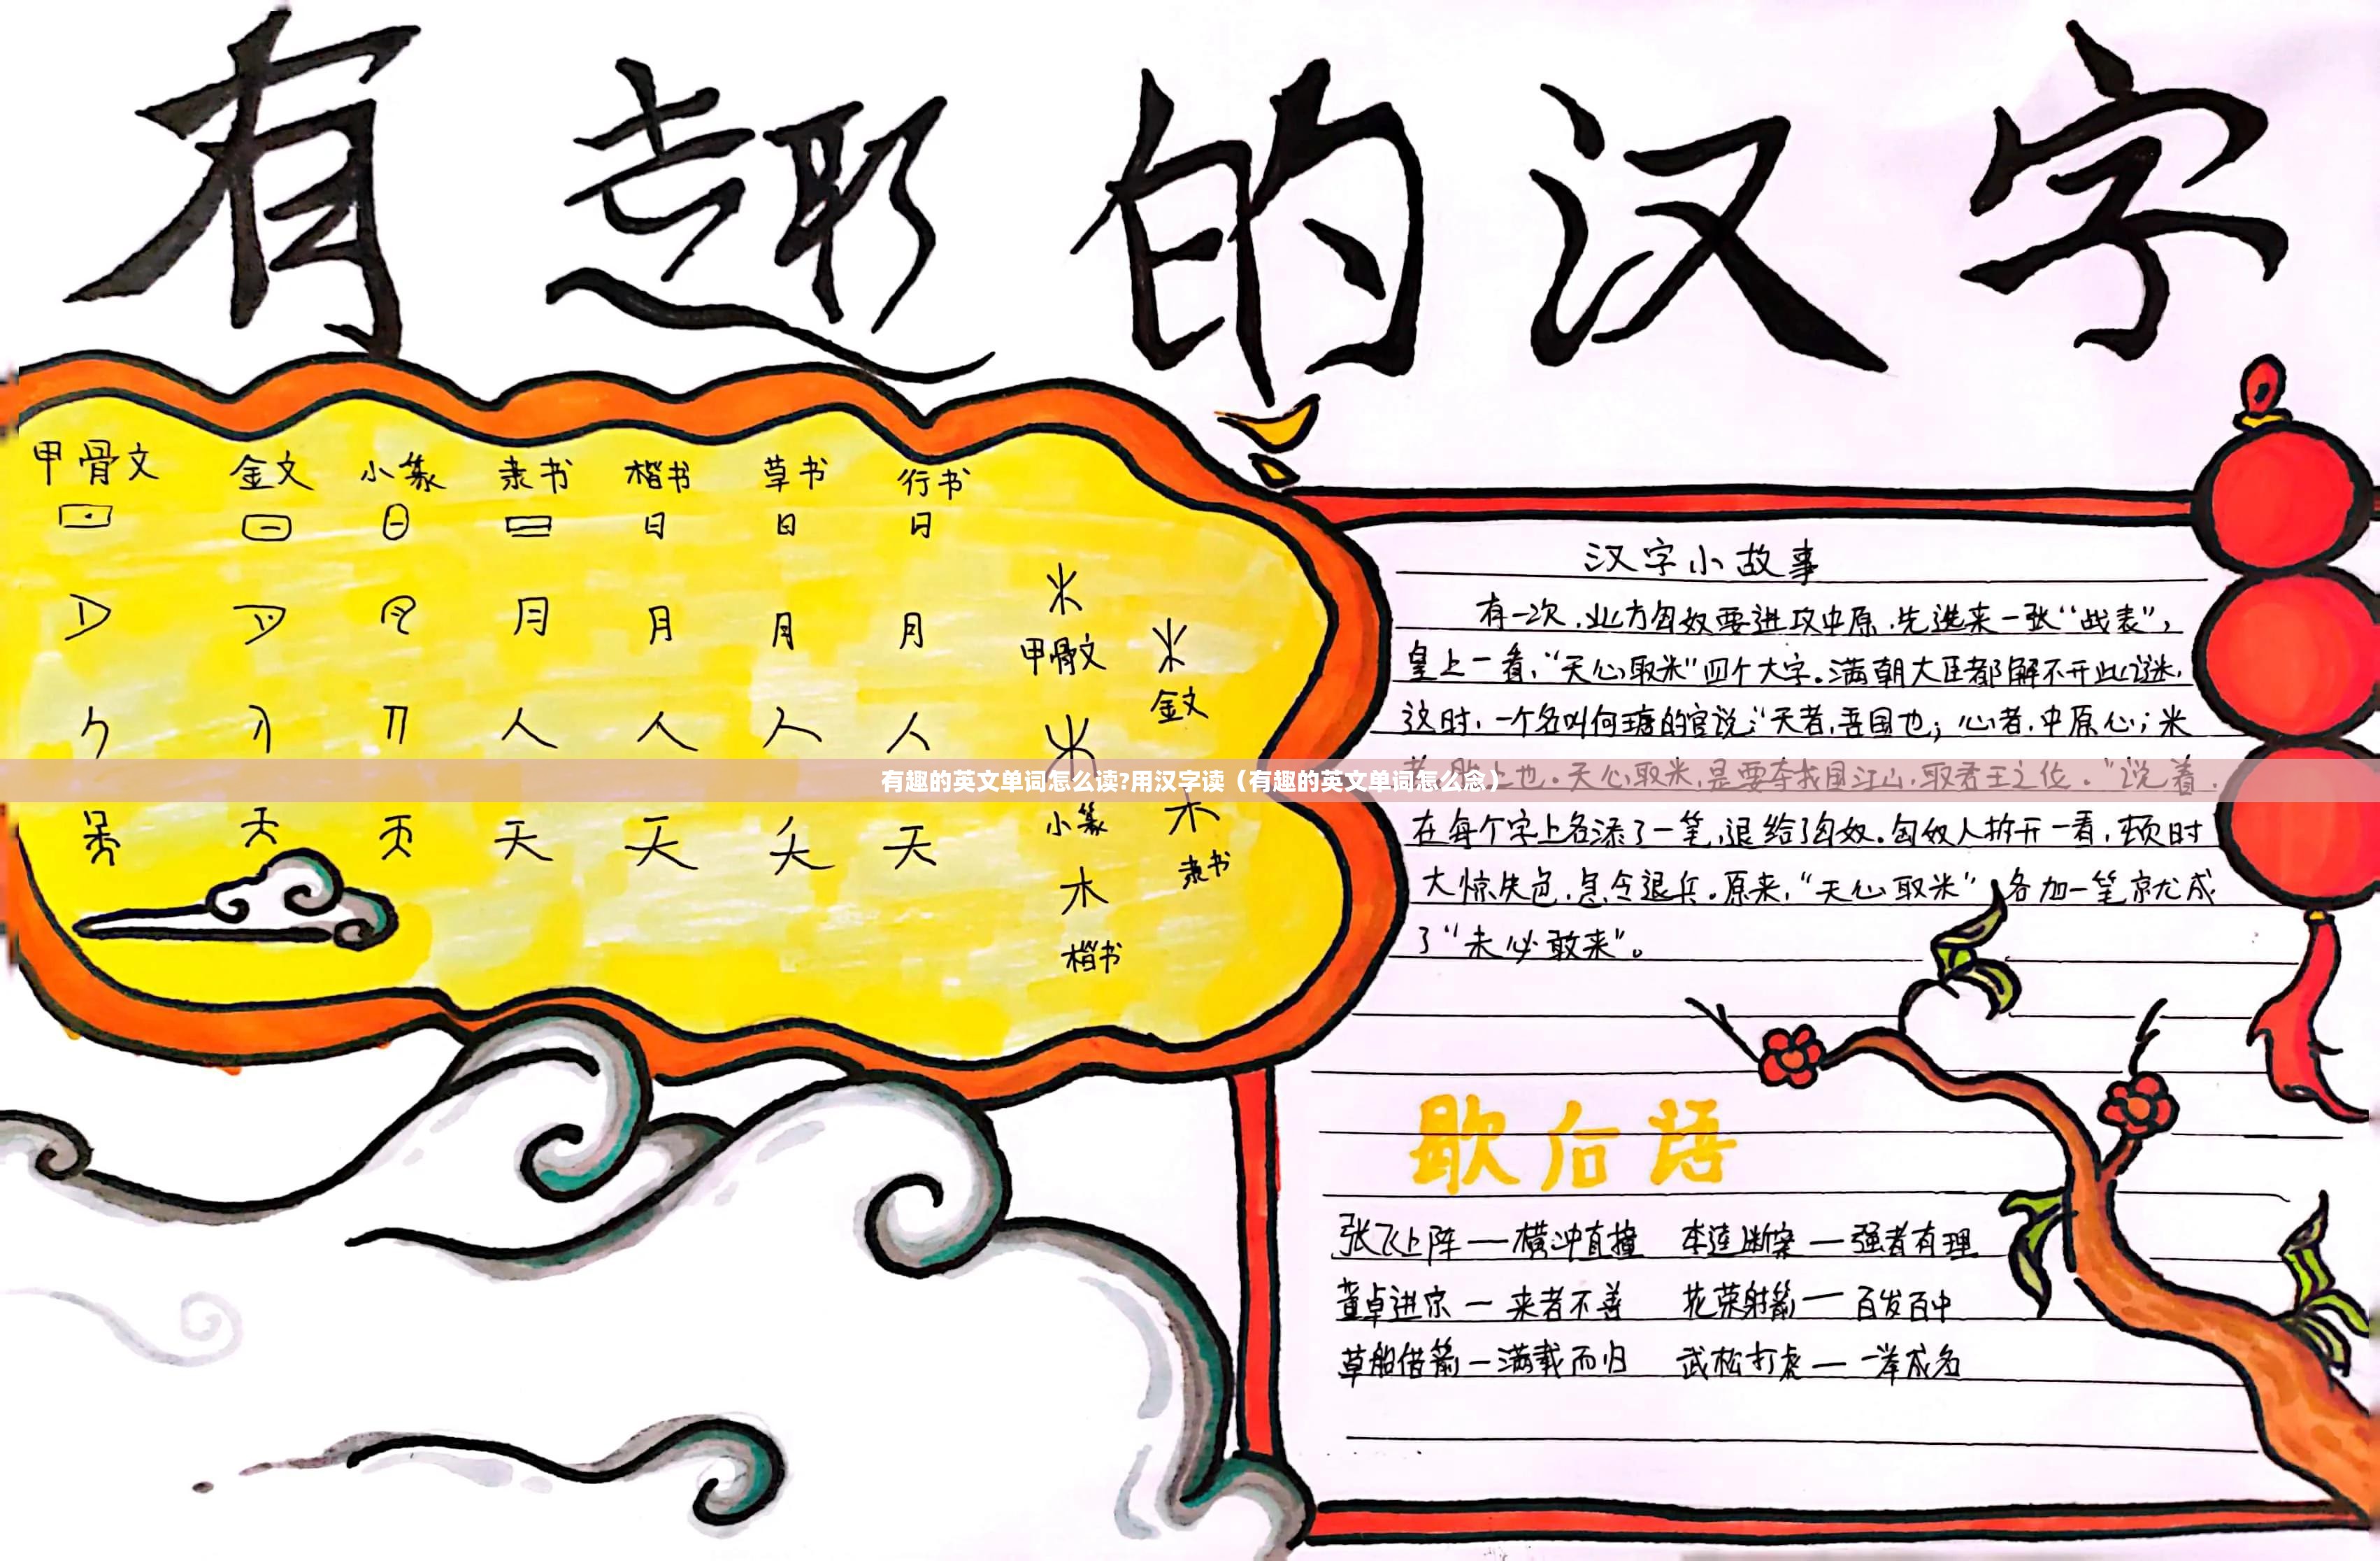 有趣的汉字
甲骨文 金文 小篆 隶书 楷书 草书 行书
日 日 日
月 月 月 月
人 人 人 人
天 天 天 天
甲骨文
金文
小篆
木
隶书
木
楷书
汉字小故事
有一次,北方匈奴要进攻中原,先送来一张“战表”,
皇上一看,“天心取米”四个大字。满朝大臣都解不开此谜,
这时,一个名叫何瑭的官说:“天者,吾国也;心者,中原心;米
者,圣上也。天心取米,是要夺我国江山,取君王之位。”说着,
有趣的英文单词怎么读?用汉字读（有趣的英文单词怎么念）
在每个字上各添了一笔,退给了匈奴。匈奴人拆开一看,顿时
大惊失色,急令退兵。原来,“天心取米”各加一笔就成
了“未必敢来”。
歇后语
张飞上阵——横冲直撞 李逵断案—强者有理
董卓进京—来者不善 花荣射箭—百发百中
草船借箭—满载而归 武松打虎—一举成名